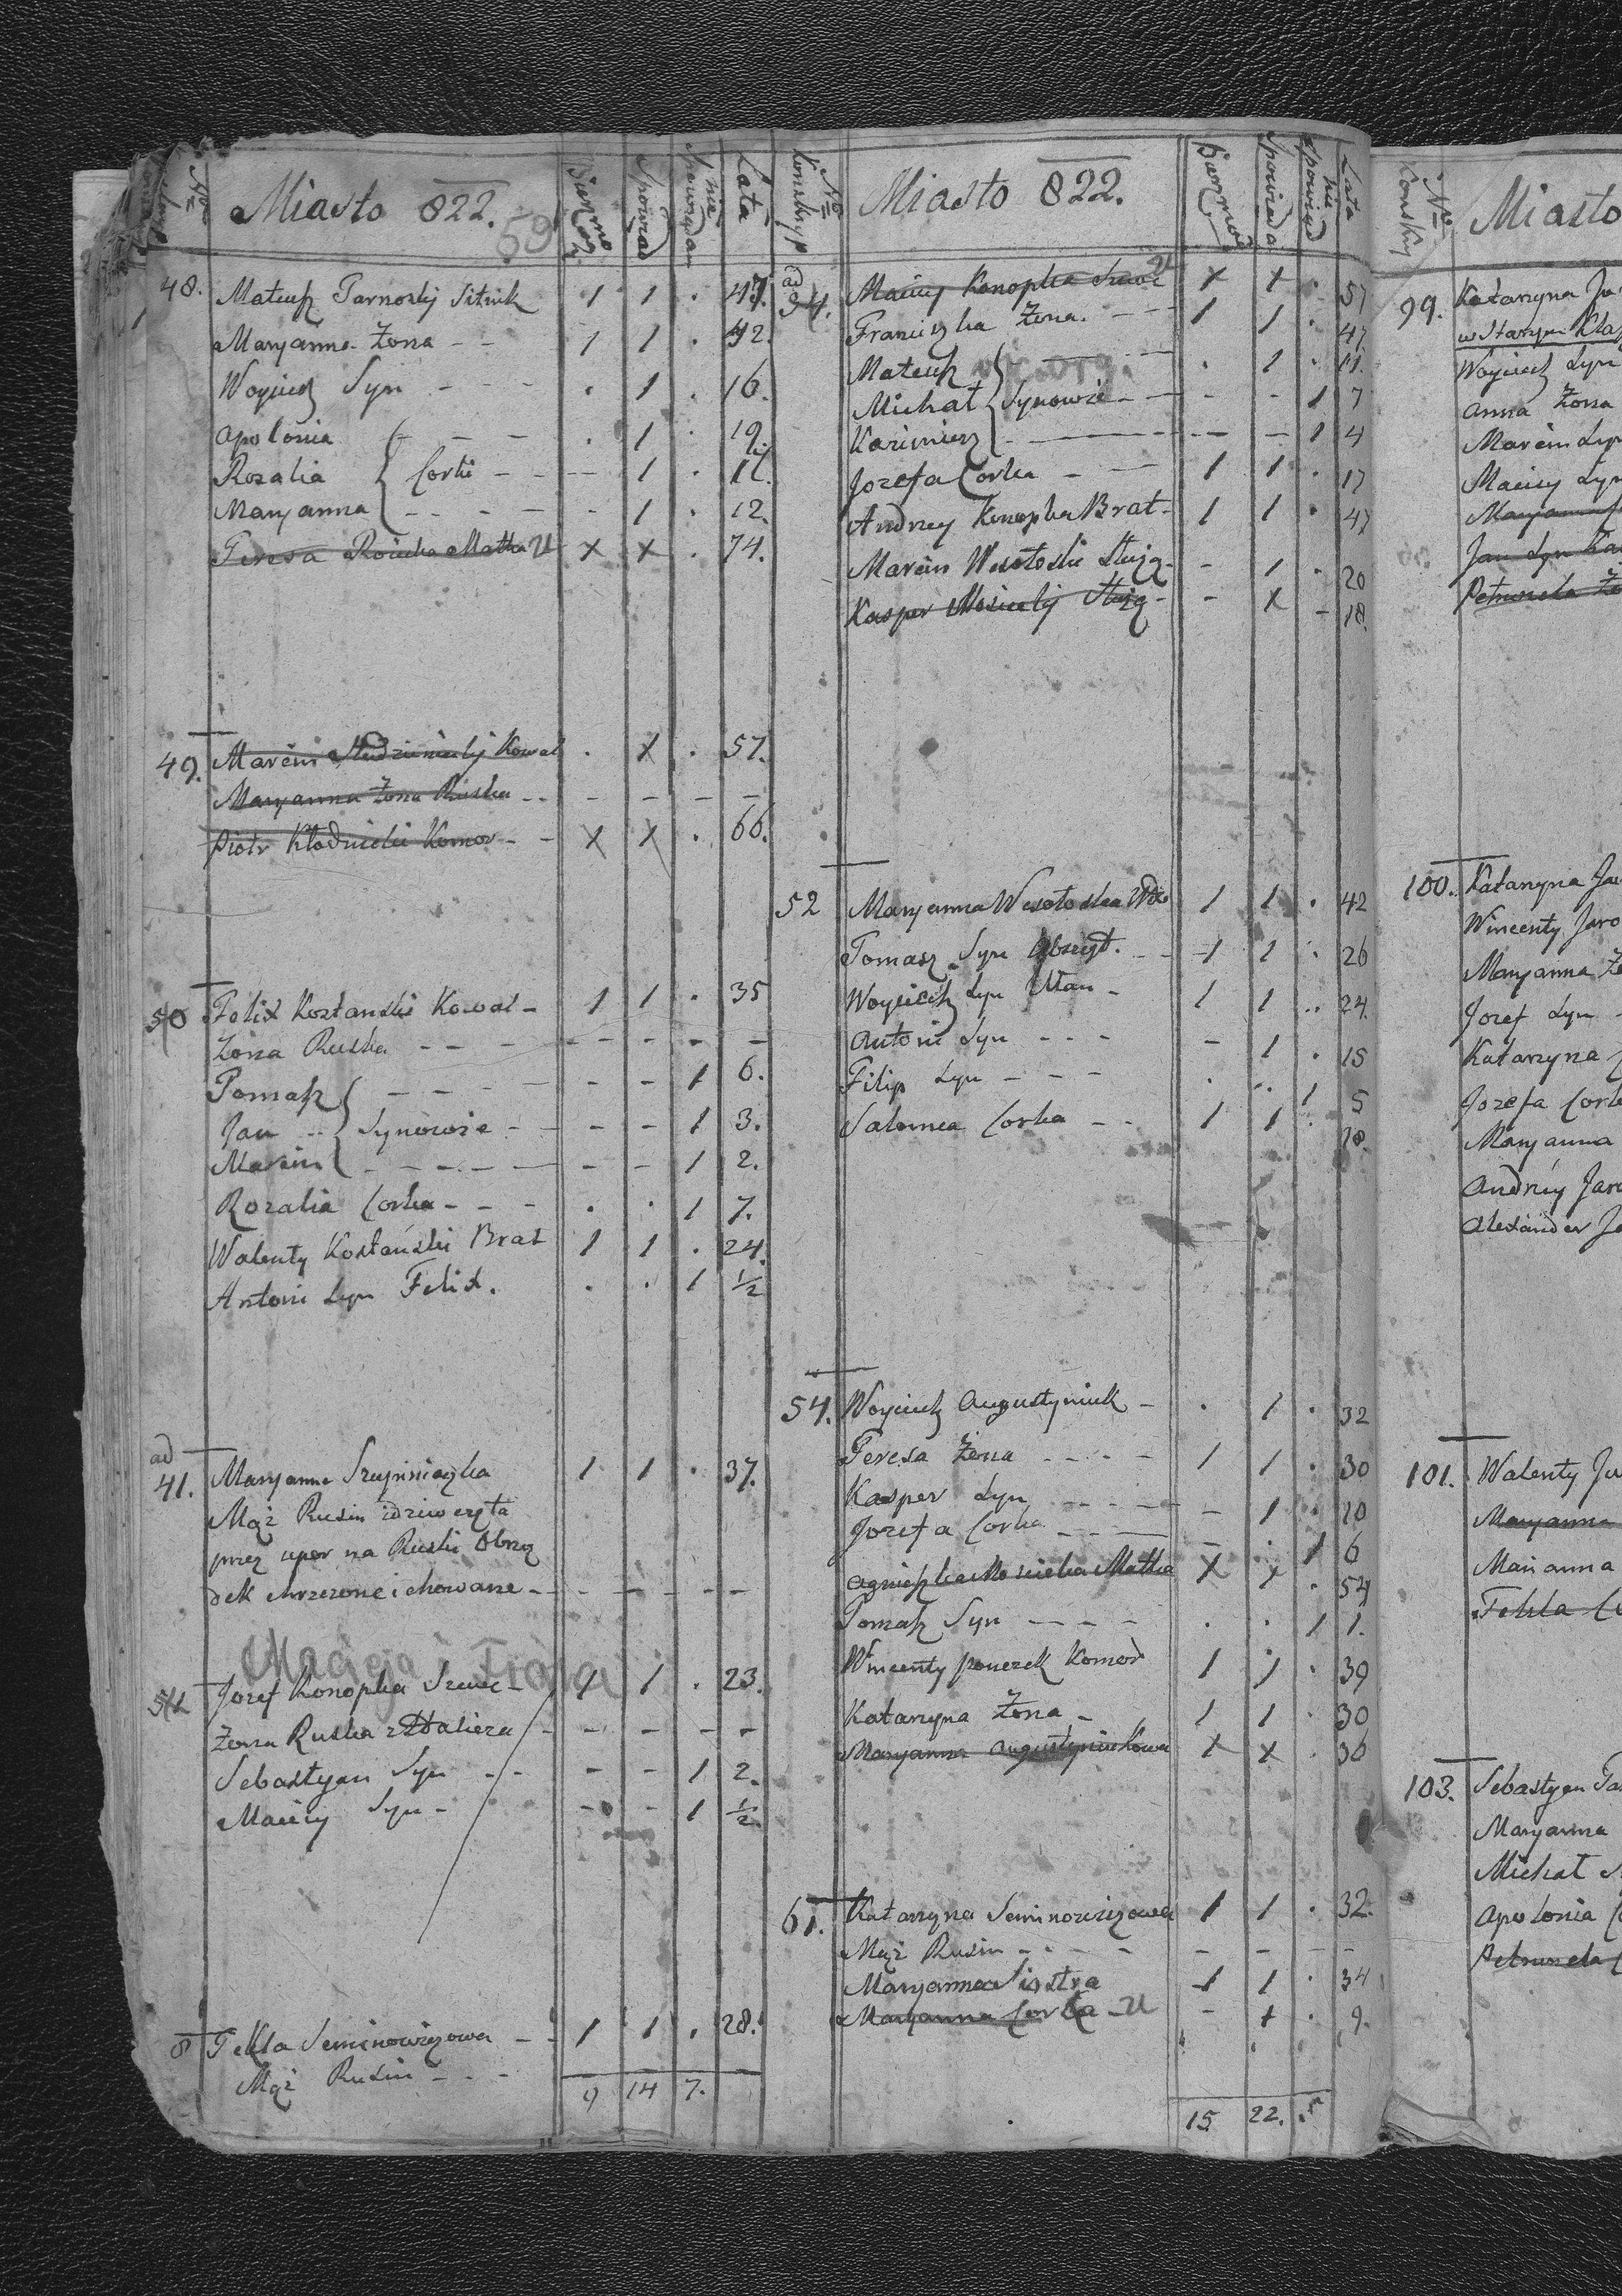 No Konskryp
Miasto 822.
59
Bierzmo
Spowiad
nie Spowiadan
Lata
48. Mateusz Tarnoskij Sitnik 1 1 . 47.
Maryanna Żona - - 1 1 . 42.
Woyciech Syn - - - . 1 . 16.
Apolonia - - - . 1 . 19.
Rozalia Corki - - - 1 . 11.
Maryanna - - - - 1 . 12.
Teresa Matka U X X . 74.
49. Marcin Kowal . X . 57.
Maryanna Żona Ruska - - - - - -
Piotr Kłodnicki Komor - - X X . 66.
50 Felix Kostanski Kowal - 1 1 . 35
Żona Ruska - - - - - - -
Tomasz - - - - - 1 6.
Jan Synowie - - - - 1 3.
Marcin - - - - - - 1 2.
Rozalia Corka - - - . . 1 7.
Walenty Kostański Brat 1 1 . 24.
Antoni Syn Felix. . . 1 ½
ad 41. Maryanna 1 1 . 37.
Mąż Rusin idziewczęta
przez upor na Ruski Obrzą
dek chrzczone i chowane - - - - - -
Macieja i
Jozef Konopka Szewc - 1 1 . 23.
Żona Ruska - - - - -
Sebastyan Syn - - - - 1 2.
Maciey Syn - - - 1 ½
Tekla Seminowiczowa - - 1 1 . 28.
Mąż Rusin - - -
9 14 7.
No Konskryp
Miasto 822.
Bierzmow
Spowiada
nie Spowiad
Lata
ad 54. Maciey Konopka Szewc U X X . 57
Franciszka Żona - - - 1 1 . 47
Mateusz . 1 . 11.
Michał Synowie - - - - 1 7
Kazimierz - - - 1 4
Jozefa Corka - - 1 1 . 17
Andrzey Konopka Brat - 1 1 . 47
Marcin Wesołoski Służą - - 1 . 20
Kasper Mosiecky Służą - - X - 18.
52 Maryanna Wesołoska Wdo 1 1 . 42
Tomasz Syn Abszyt. - - 1 1 . 26
Woyciech Syn Ułan - 1 1 . 24
Antoni Syn - - - - 1 . 15
Filip Syn - - - . . 1 5
Salomea Corka - - 1 1 . 18.
54. Woyciech Augustyniuk - . 1 . 32
Teresa Żona - - - - 1 1 . 30
Kasper Syn - - - - - 1 . 10
Jozefa Corka - - - - . 1 6
Agnieszka Mosiecka Matka X X . 54
Tomasz Syn - - - - . . 1 1.
Wincenty Ponczek Komor 1 1 . 39
Katarzyna Żona - 1 1 . 30
Maryanna Augustyniukowa X X . 36
61. Katarzyna Seminowiczowa 1 1 . 32.
Mąż Rusin - - - - - - - -
Maryanna Siostra 1 1 . 34
Maryanna Corka - U - + . 9.
15 22. 5
No Konskry
Miasto
99. Katarzyna
w Starym
Woyciech Syn
Anna Żona
Marcin Syn
Maciey Syn
Maryanna
Jan Syn
Petronela
100. Katarzyna
Wincenty
Maryanna
Jozef Syn
Katarzyna
Jozefa Cork
Maryanna
Andrzy
Alexander
101. Walenty
Maryanna
Marianna
Tekla
103. Sebastyan
Maryanna
Michał
Apolonia
Petronela